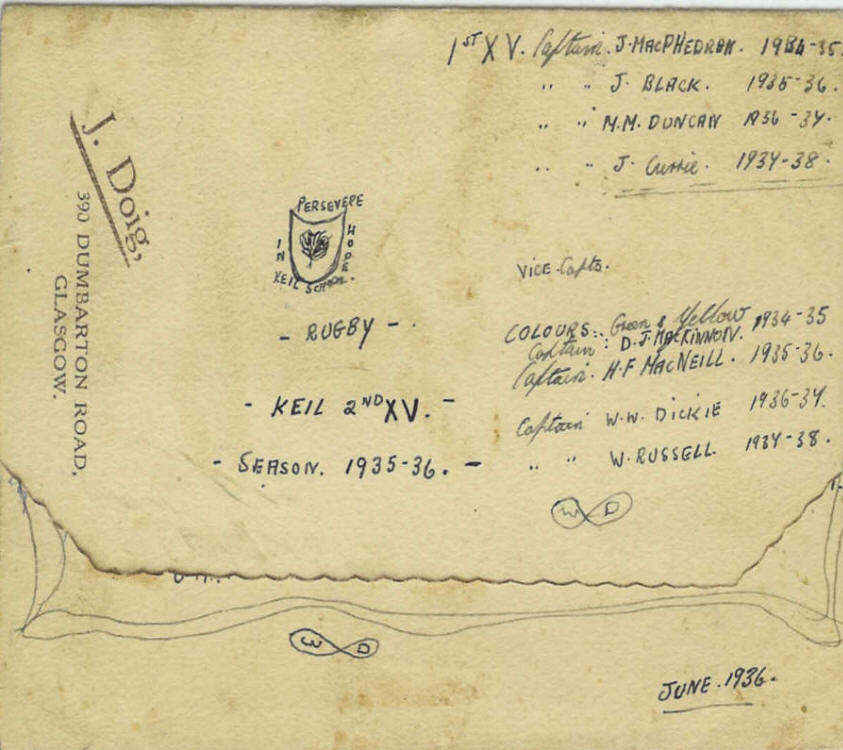 1ST XV. Captain. J. MACPHEDRAN. 1934-35.
" " J. BLACK. 1935-36.
" " M.M. DUNCAN 1936-37.
" " J. Currie. 1937-38.
J. Doig,
390 DUMBARTON ROAD,
GLASGOW.
PERSEVERE
IN HOPE
KEIL SCHOOL.
- RUGBY -
- KEIL 2ND XV. -
- SEASON. 1935-36. -
VICE-Capts.
COLOURS:- Green & Yellow
Captain: D.J. MACKINNON. 1934-35
Captain. H.F MACNEILL. 1935-36.
Captain W.W. DICKIE 1936-37.
" " W. RUSSELL. 1937-38.
W D
W D
JUNE. 1936.